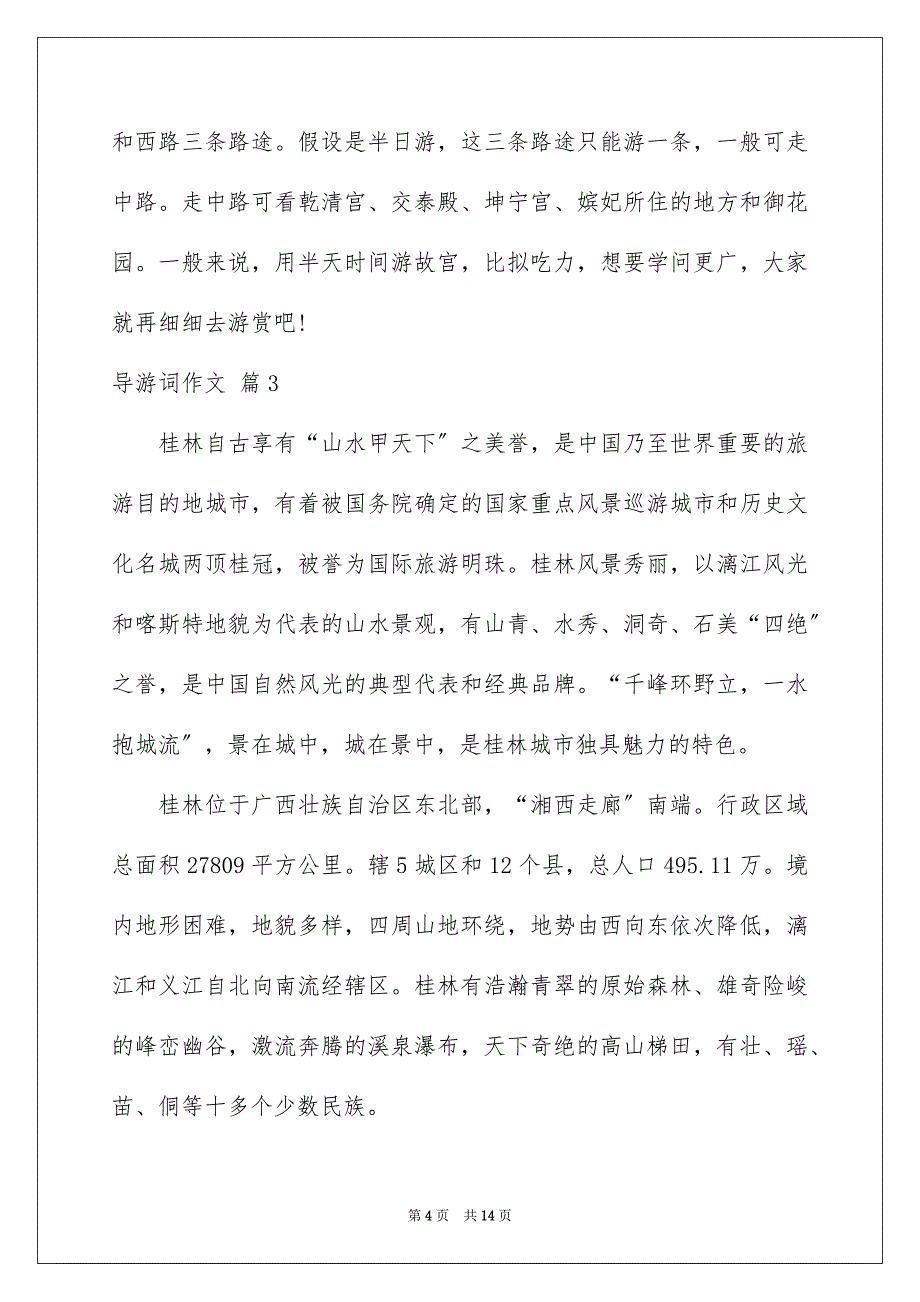 和西路三条路途。假设是半日游，这三条路途只能游一条，一般可走
中路。走中路可看乾清宫、交泰殿、坤宁宫、嫔妃所住的地方和御花
园。一般来说，用半天时间游故宫，比拟吃力，想要学问更广，大家
就再细细去游赏吧!
导游词作文 篇3
桂林自古享有“山水甲天下〞之美誉，是中国乃至世界重要的旅
游目的地城市，有着被国务院确定的国家重点风景巡游城市和历史文
化名城两顶桂冠，被誉为国际旅游明珠。桂林风景秀丽，以漓江风光
和喀斯特地貌为代表的山水景观，有山青、水秀、洞奇、石美“四绝〞
之誉，是中国自然风光的典型代表和经典品牌。“千峰环野立，一水
抱城流〞，景在城中，城在景中，是桂林城市独具魅力的特色。
桂林位于广西壮族自治区东北部，“湘西走廊〞南端。行政区域
总面积27809平方公里。辖5城区和12个县，总人口495.11万。境
内地形困难，地貌多样，四周山地环绕，地势由西向东依次降低，漓
江和义江自北向南流经辖区。桂林有浩瀚青翠的原始森林、雄奇险峻
的峰峦幽谷，激流奔腾的溪泉瀑布，天下奇绝的高山梯田，有壮、瑶、
苗、侗等十多个少数民族。
第4页 共14页